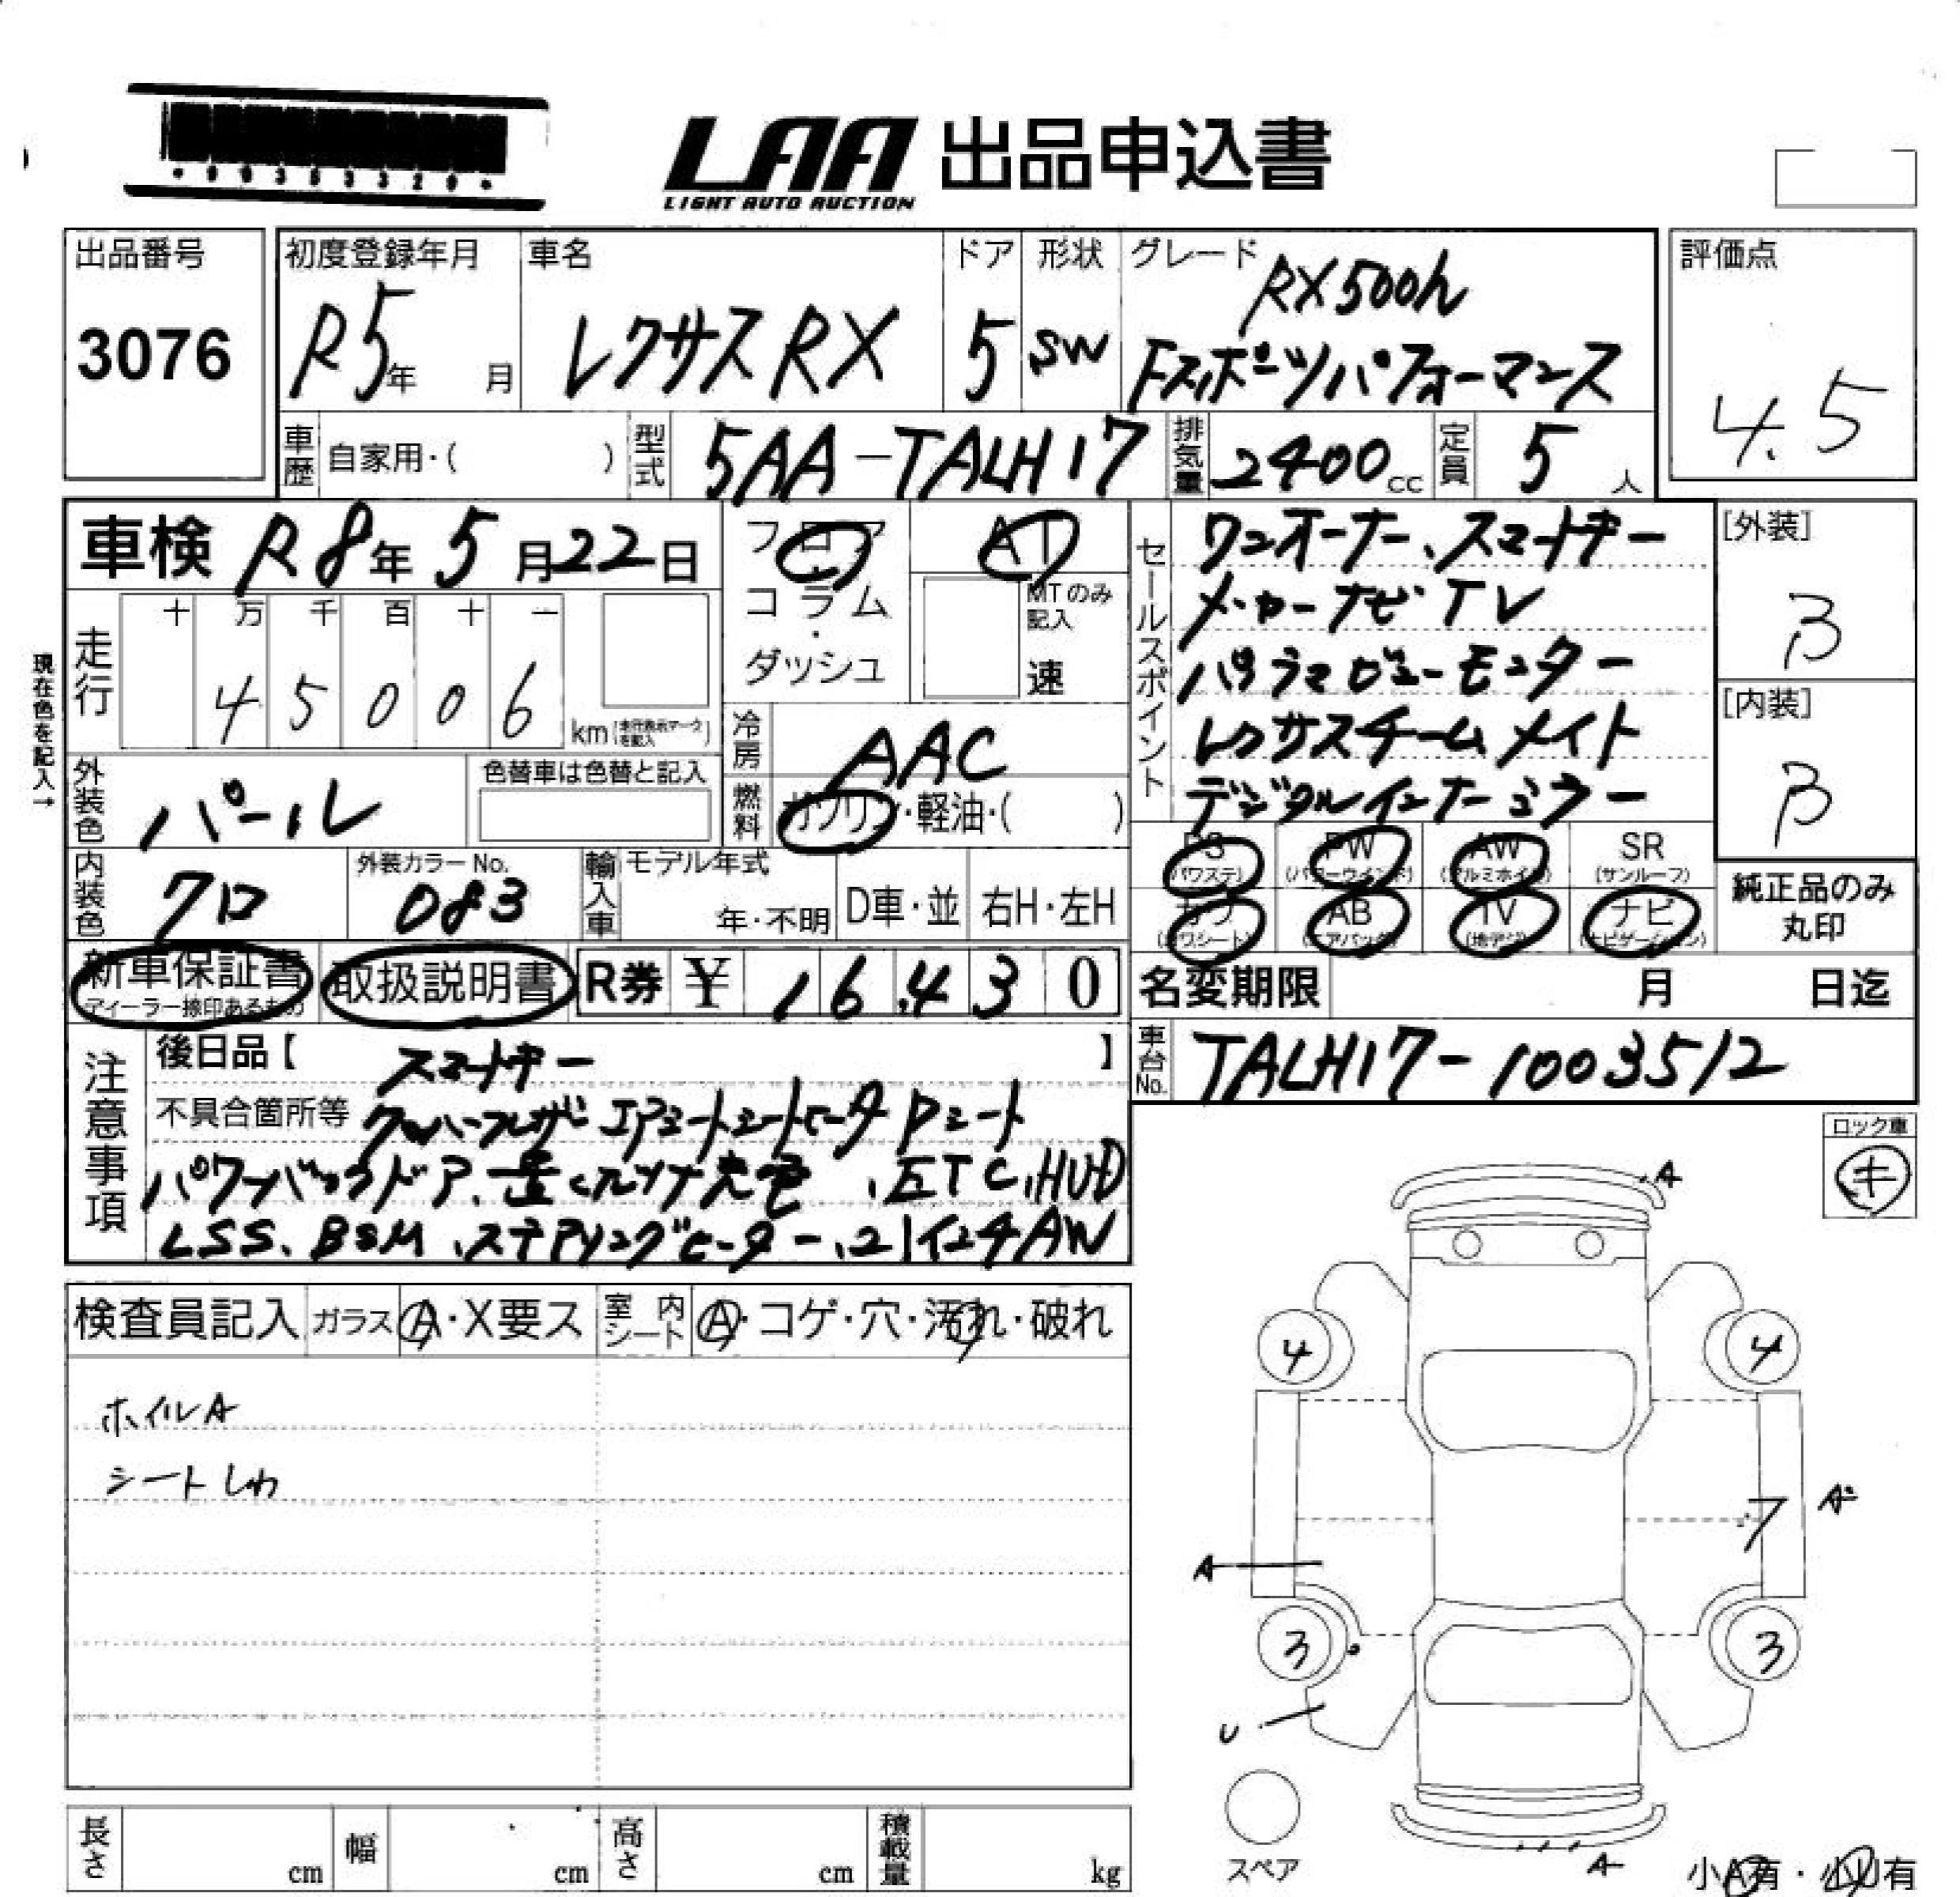 LAA 出品申込書
LIGHT AUTO AUCTION
出品番号
3076
初度登録年月
R5年 月
車名
レクサス RX
ドア
5
形状
SW
グレード
RX500h
Fスポーツパフォーマンス
評価点
4.5
車歴 自家用・( )
型式 5AA-TALH17
排気量 2400cc
定員 5人
車検 R8年5月22日
フロア
コラム
・
ダッシュ
AT
MTのみ記入
速
セールスポイント
ワンオーナー、スマートキー
メーカーナビTV
パノラマビューモニター
レクサスチームメイト
デジタルインナーミラー
[外装]
B
[内装]
B
現在色を記入→
走行
十 万 千 百 十 一
4 5 0 0 6
km
冷房 AAC
燃料 ガソリン・軽油・( )
外装色 パール
色替車は色替と記入
内装色 クロ
外装カラーNo.
083
輸入車
モデル年式
年・不明
D車・並
右H・左H
PS (パワステ)
PW (パワーウインド)
AW (アルミホイル)
SR (サンルーフ)
カワ (カワシート)
AB (エアバッグ)
TV (地デジ)
ナビ (ナビゲーション)
純正品のみ
丸印
新車保証書
ディーラー捺印あるもの
取扱説明書
R券 ¥ 16,430
名変期限 月 日迄
車台No. TALH17-1003512
注意事項
後日品【 スマートキー 】
不具合箇所等 クルハーフレザー エアシート シートヒータ Pシート
パワーバックドア、置くだけ充電、ETC、HUD
LSS、BSM、ステアリングヒーター、21インチAW
ロック車
キ
検査員記入
ガラス A・X要ス
室内シート A・コゲ・穴・汚れ・破れ
ホイルA
シートしわ
A
4 4
7 A
A
3 3
U
スペア
A
小A有・小U有
長さ cm
幅 cm
高さ cm
積載量 kg